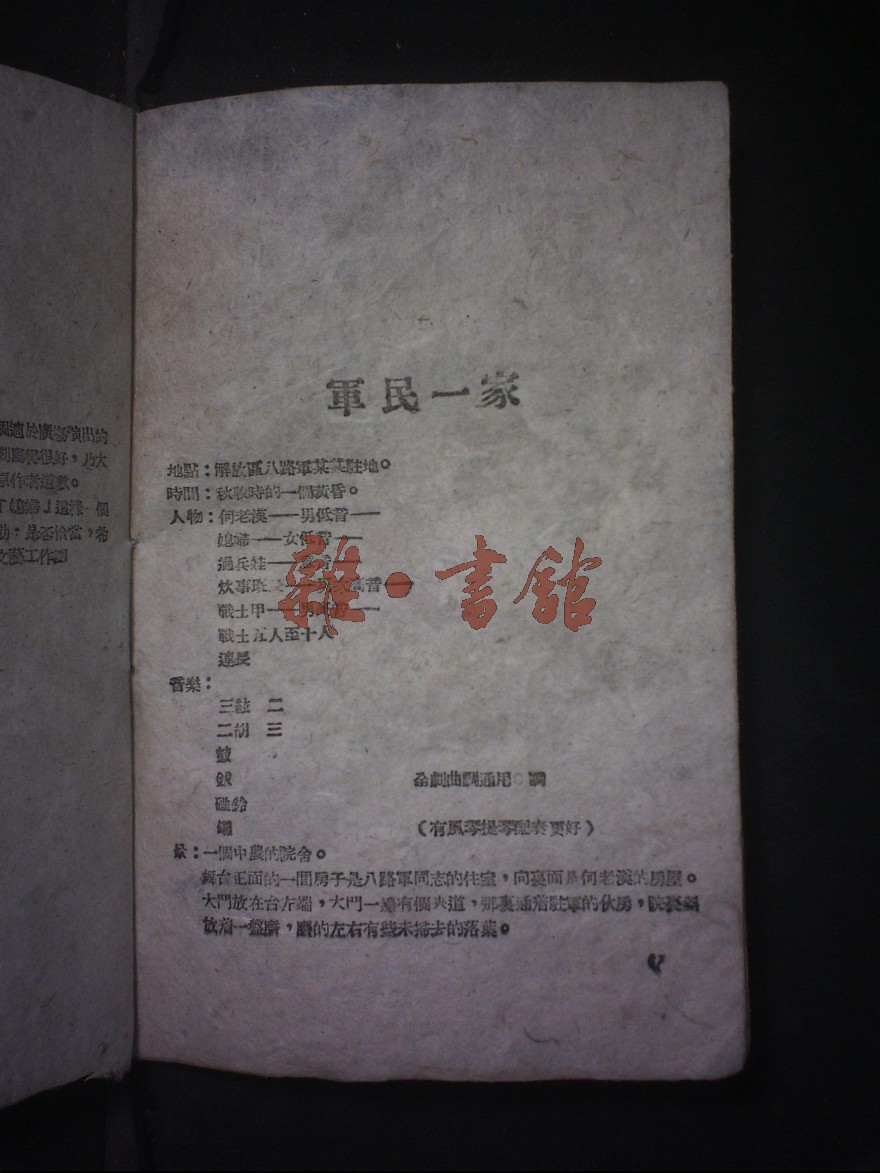 於廣場演出的
很好，乃大
原作者道歉。
」這漾一個
：是否恰當，希
文藝工作
軍民一家
地點：解放區八路軍某某駐地。
時間：秋收時的一個黃昏。
人物：何老漢——男低音——
媳婦——女低音——
過兵娃——音——
炊事班長——音——
戰士甲——男低音——
戰士五人至十人
連長
音樂：
三絃 二
二胡 三
鼓
鈸 全劇曲調通用 調
碰鈴
鑼 （有風琴提琴配奏更好）
景：一個中農的院舍。
舞台正面的一間房子是八路軍同志的住室，向裏面是何老漢的房屋。
大門放在台左端，大門一邊有個夾道，那裏通着駐軍的伙房，院
放着一盤磨，磨的左右有些未掃去的落葉。
雜·書館